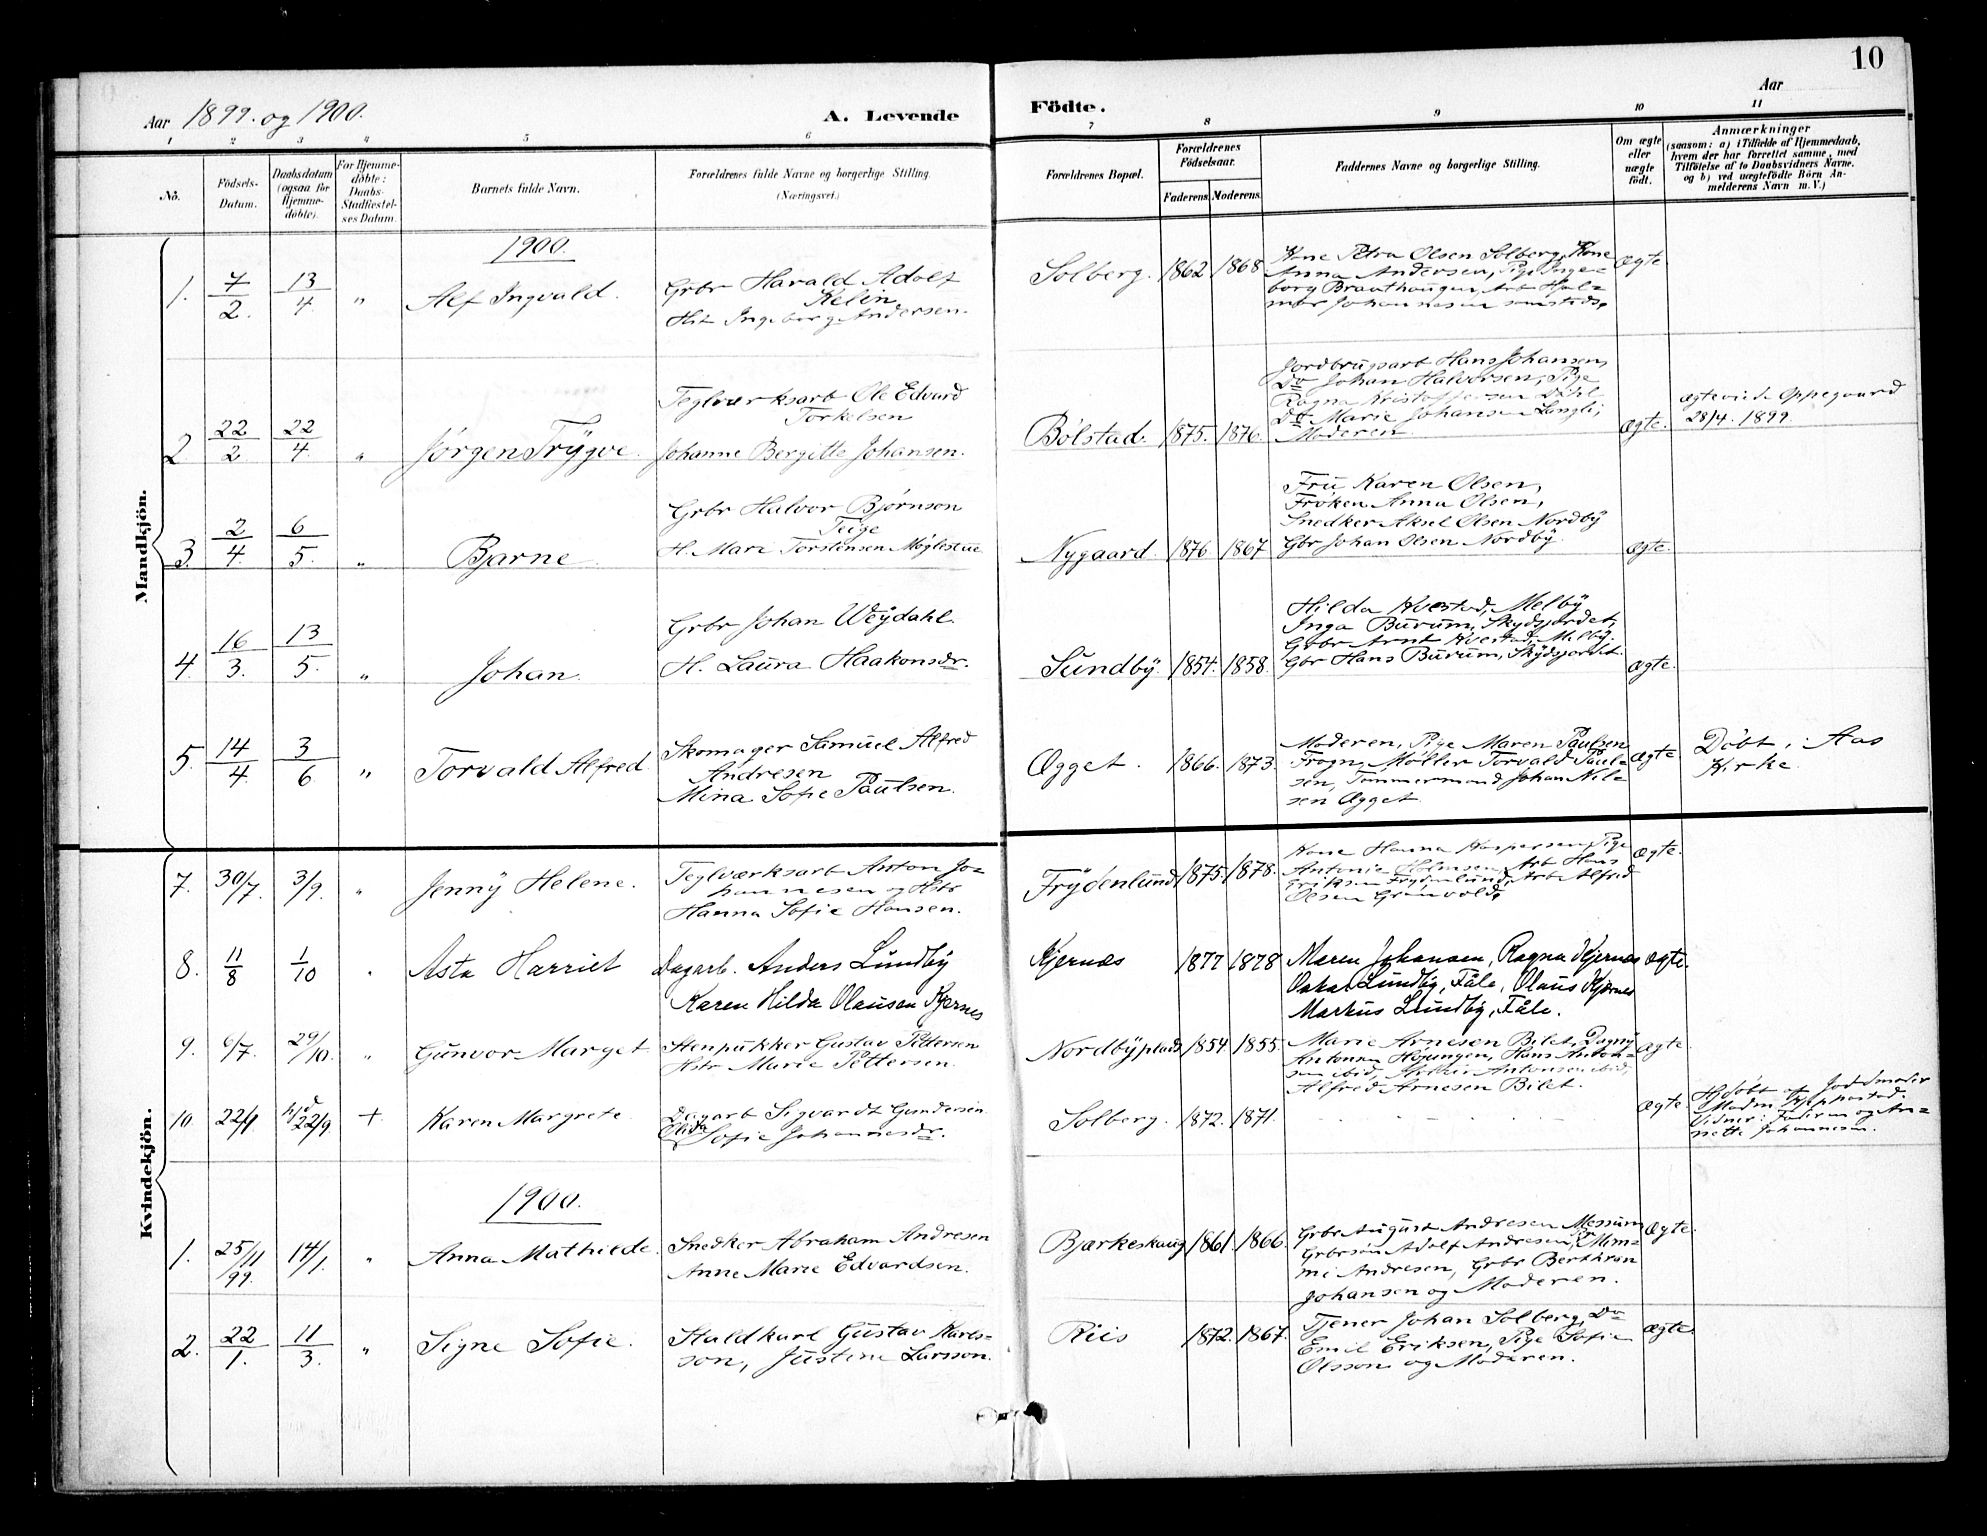 10
Aar 1899. og 1900.
A. Levende
Födte.
Aar
1 2 3 4 5 6 7 8 9 10 11
No.
Födsels-Datum.
Daabsdatum (ogsaa for Hjemme-döbte).
For Hjemme-döbte: Daabs-Stadfæstel-ses Datum.
Barnets fulde Navn.
Forældrenes fulde Navne og borgerlige Stilling.
(Næringsvei.)
Forældrenes Bopæl.
Forældrenes Födselsaar.
Faderens. Moderens.
Faddernes Navne og borgerlige Stilling.
Om ægte eller uægte födt.
Anmærkninger
(saasom: a) i Tilfælde af Hjemmedaab,
hvem der har forrettet samme, med
Tilföielse af to Daabsvidners Navne.
og b) ved uægtefödte Börn An-
melderens Navn m. V.)
Mandkjön.
1900.
1. 7/2. 13/4. " Alf Ingvald.
Grbr Harald Adolf
Kelin,
Hst Ingeborg Andersen.
Solberg. 1862 1868
Kone Petra Olsen Solberg, Kone
Anna Andersen, Pige Inge-
borg Brauthaugen, Arb Hjal-
mar Johannesen samsteds.
ægte
2 22/2 22/4. " Jørgen Trygve.
Teglværksarb Ole Edvard
Torkelsen
Johanne Bergitte Johansen.
Bølstad. 1875. 1876.
Jordbrugsarb Hans Johansen,
Do Johan Halvorsen, Pige
Ragna Kristoffersen Dahl,
Do Marie Johansen Langli,
Moderen.
ægte.
ægteviede Oppegaard
28/4. 1899
3. 2/4. 6/5. " Bjarne.
Grbr Halvor Bjørnson
Teige
H. Mari Torstensen Møglestue
Nygaard. 1876 1867
Fru Karen Olsen,
Frøken Anna Olsen,
Snedker Aksel Olsen Nordby
Gbr Johan Olsen Nordby.
ægte.
4. 16/3. 13/5. " Johan.
Grbr Johan Weydahl.
H. Laura Haakonsdr.
Sundby. 1854. 1858.
Hilda Kvestad, Melby
Inga Burum, Skydsjordet,
Grbr Arnt Kvestad, Melby.
Gbr Hans Burum, Skydsjordet.
ægte.
5. 14/4. 3/6 " Torvald Alfred.
Skomager Samuel Alfred
Andresen
Mina Sofie Paulsen.
Ægget. 1866. 1873.
Moderen, Pige Maren Paulsen
Frogn, Møller Torvald Paul-
sen, Tømmermand Johan Nil-
sen Ægget.
ægte.
Døbt i Aas
Kirke.
Kvindekjön.
7. 30/7. 3/9. " Jenny Helene.
Teglværksarb Anton Jo-
hannesen og Hstr
Hanna Sofie Hansen.
Frydenlund 1875. 1878.
Kone Hanna Kaspersen, Pige
Antonie Holmsen, Arb Hans
Eriksen Frydenlund, Arb Alfred
Olsen Grønvold.
ægte.
8. 11/8 1/10 " Asta Harriet
Dagarb. Anders Lundby
Karen Hilda Olausen Kjernes
Kjernæs 1877 1878
Maren Johansen, Ragna Kjernæs
Oskar Lundby, Fåle, Olaus Kjernes
Markus Lundby, Fåle.
ægte.
9. 6/7. 29/10. " Gunvor Marget
Stenpukker Gustav Pettersen
Hstr Marie Pettersen.
Nordbyplads 1854. 1855.
Marie Arnesen Bilet, Dagny
Antonsen Haugen, Hans Anton-
sen ibid, Antonsen ibid,
Alfred Arnesen Bilet.
ægte.
10. 22/9 22/9. + Karen Margrete.
Dagarb Sigvardt Gundersen
Olida Sofie Johannesdr.
Solberg. 1872. 1871.
- - - - -
ægte.
Hjdøbt af Jordmoder
Madm.
Vidner: Faderen og An-
nette Johannesen.
1900.
1. 25/11 99. 14/1. " Anna Mathilde.
Snedker Abraham Andresen
Anne Marie Edvardsen.
Bjærkeskaug 1861. 1866.
Grbr August Andresen Messum
Grbrsøn Adolf Andresen, Pi Mim-
mi Andresen, Grbr Berthron
Johansen og Moderen.
ægte.
2. 22/1. 11/3. " Signe Sofie.
Staldkarl Gustav Karls-
son, Justine Larsson.
Riis 1872. 1867.
Tjener Johan Solberg, Do
Emil Eriksen, Pige Sofie
Olsson og Moderen.
ægte.